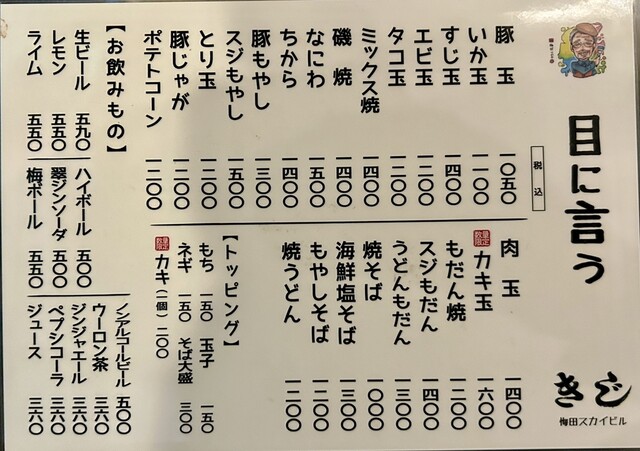 目に言う
きじ
梅田スカイビル
税込
豚玉 一〇五〇
いか玉 一一〇〇
すじ玉 一四〇〇
エビ玉 一二〇〇
タコ玉 一二〇〇
ミックス焼 一四〇〇
磯焼 一四〇〇
なにわ 一五〇〇
ちから 一四〇〇
豚もやし 一三〇〇
スジもやし 一五〇〇
とり玉 一二〇〇
豚じゃが 一二〇〇
ポテトコーン 一二〇〇
肉玉 一四〇〇
数量限定 カキ玉 一六〇〇
もだん焼 一二〇〇
スジもだん 一四〇〇
うどんもだん 一三〇〇
焼そば 一〇〇〇
海鮮塩そば 一三〇〇
もやしそば 一二〇〇
焼うどん 一二〇〇
【トッピング】
もち 一五〇 玉子 一五〇
ネギ 一五〇 そば大盛 三〇〇
数量限定 カキ(一個)二〇〇
【お飲みもの】
生ビール 五九〇
レモン 五五〇
ライム 五五〇
ハイボール 五〇〇
翠ジンソーダ 五〇〇
梅ボール 五五〇
ノンアルコールビール 五〇〇
ウーロン茶 三六〇
ジンジャエール 三六〇
ペプシコーラ 三六〇
ジュース 三六〇